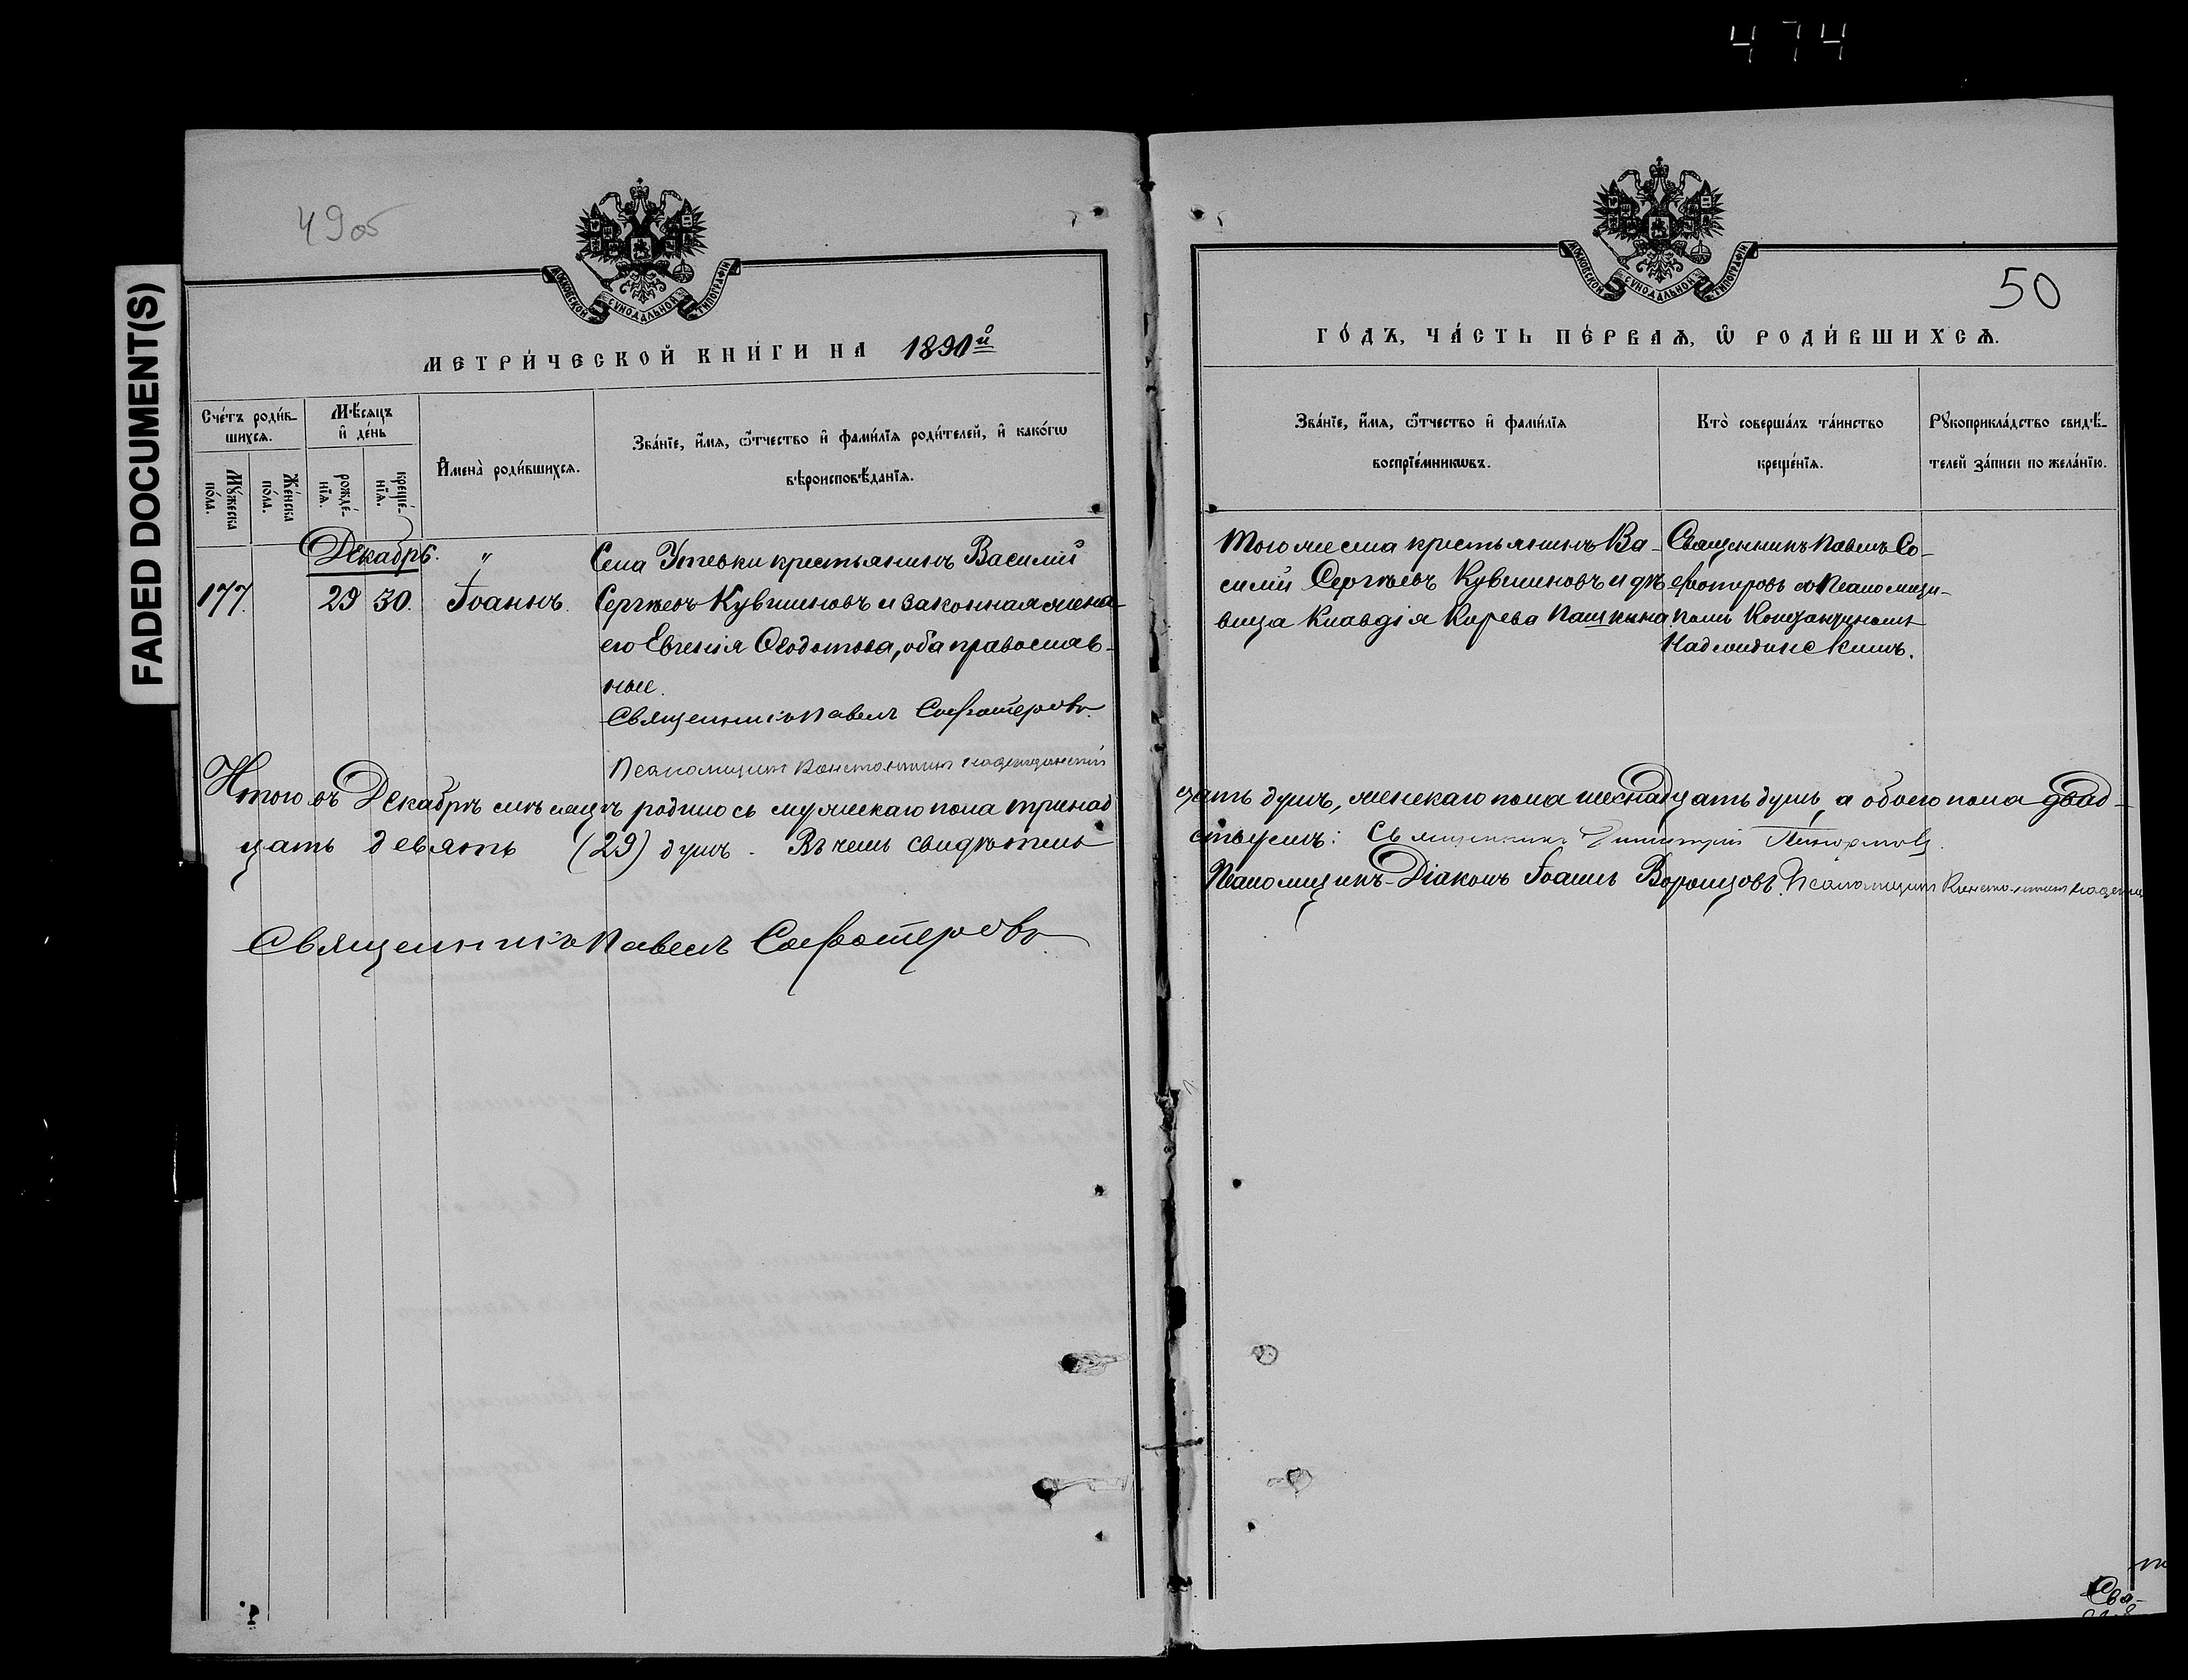 474
FADED DOCUMENT(S)
49об
МОСКОВСКОЙ СѴНОДАЛЬНОЙ ТИПОГРАФІИ
МЕТРИ́ЧЕСКОЙ КНИ́ГИ НА 1890й
Сче́тъ роди́в-
шихсѧ.
Мѣ́сяцъ
и҆ де́нь
И҆мена̀ роди́вшихсѧ.
Зва́нїе, и҆́мѧ, ѻ҆́тчество и҆ фами́лїѧ роди́телей, и҆ како́гѡ
вѣроисповѣ́данїѧ.
Мꙋ́жеска
по́ла.
Же́нска
по́ла.
рожде́-
нїѧ.
креще́-
нїѧ.
Декабрь. "
Села Утевки крестьянинъ Василій
177. 29 30. Іоаннъ. Сергѣевъ Кувшиновъ и законная жена
его Евгенія Ѳеодотова, оба православ-
ные.
Священникъ Павелъ Софотеровъ.
Псаломщикъ Константинъ Надеждинскій
Итого въ Декабрѣ сим мѣсяцѣ родилось мужескаго пола тринад
цать девять (29) душъ. Въ чемъ свидѣтель
Священникъ Павелъ Софотеровъ.
МОСКОВСКОЙ СѴНОДАЛЬНОЙ ТИПОГРАФІИ
50
ГО́ДЪ, ЧА́СТЬ ПЕ́РВАѦ, Ѽ РОДИ́ВШИХСѦ.
Зва́нїе, и҆́мѧ, ѻ҆́тчество и҆ фами́лїѧ
воспрїе́мникѡвъ.
Кто̀ соверша́лъ та́инство
креще́нїѧ.
Рꙋкоприкла́дство свидѣ́-
телей за́писи по жела́нїю.
Того же села крестьянинъ Ва-
силій Сергѣевъ Кувшиновъ и дѣ
вица Клавдія Кирева Пашкина.
Священникъ Павелъ Со-
фотеровъ съ Псаломщи-
комъ Константиномъ
Надеждинскимъ.
цать душъ, женскаго пола шеснадцать душъ, а обоего пола двад-
ствуемъ: Священникъ Димитрій
Псаломщикъ-Діаконъ Іоаннъ Воронцовъ. Псаломщикъ Константинъ
Свя-